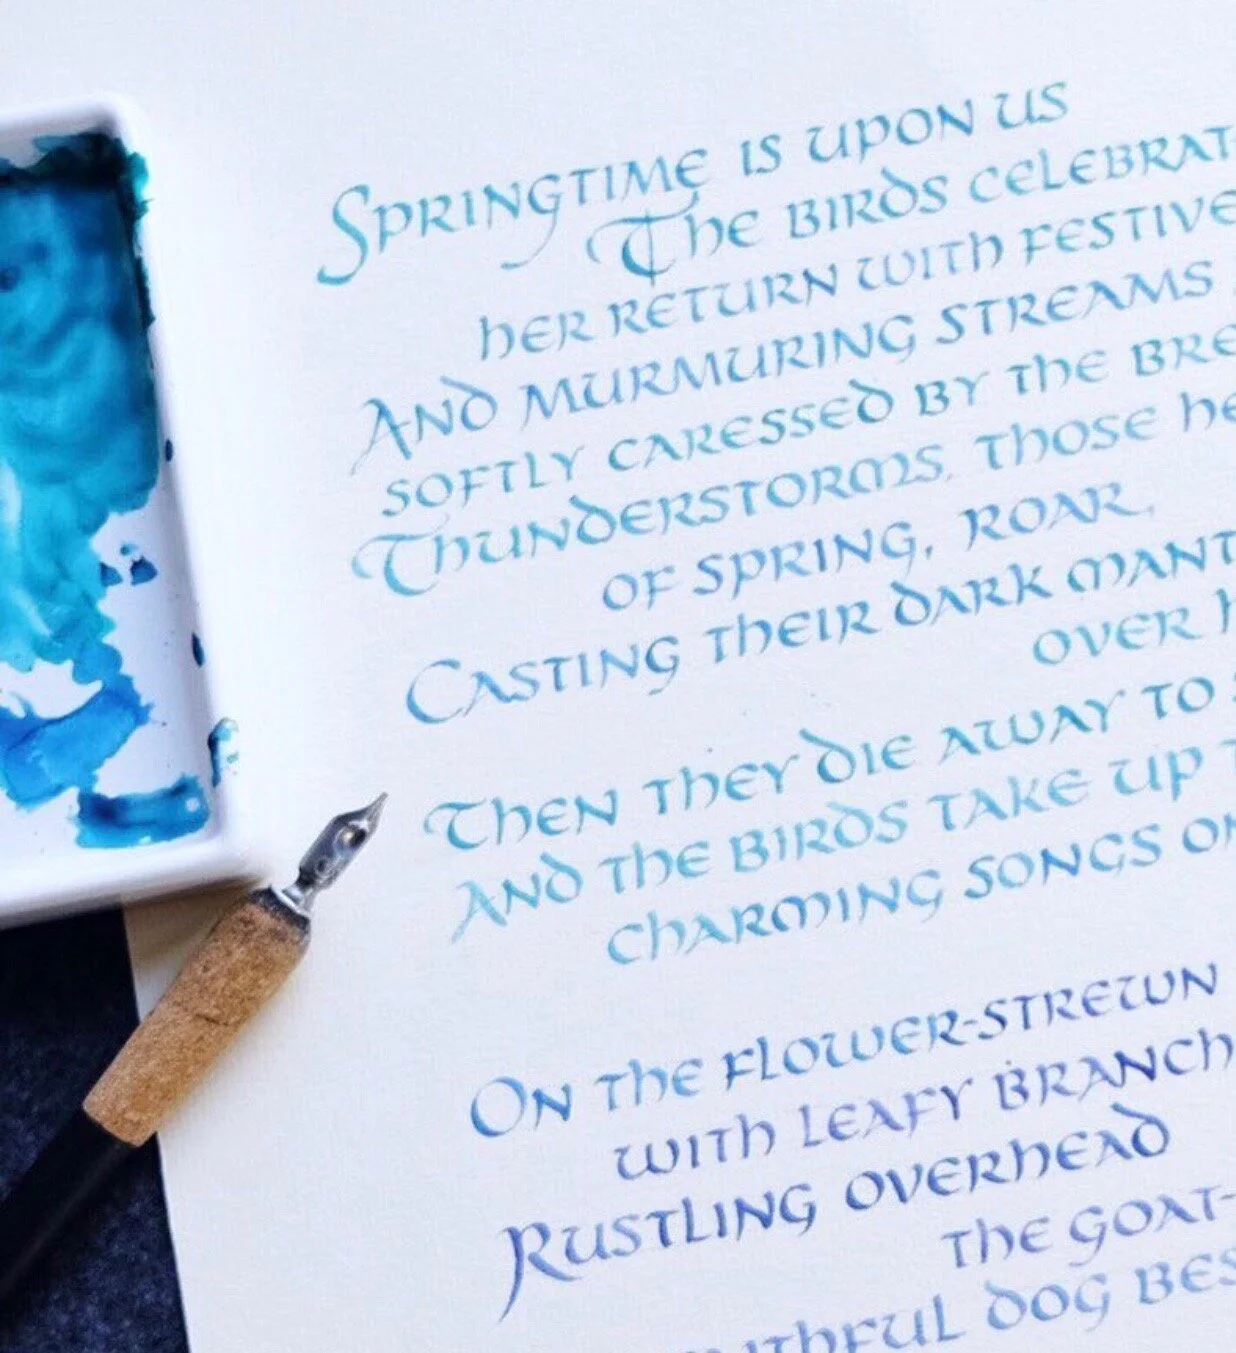 Springtime is upon us
The birds celebrat
her return with festive
And murmuring streams
softly caressed by the bre
Thunderstorms, those he
of spring, roar,
Casting their dark mant
over h
Then they die away to
And the birds take up t
charming songs on
On the flower-strewn
with leafy branch
Rustling overhead
the goat-
ithful dog bes